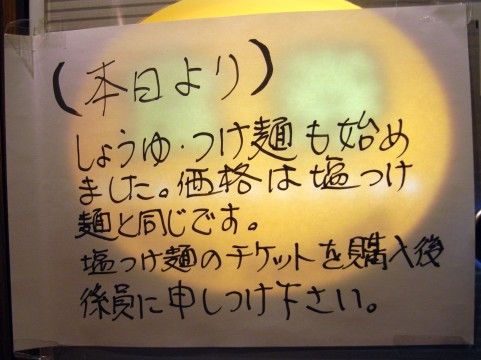 (本日より)
しょうゆ・つけ麺も始め
ました。価格は塩つけ
麺と同じです。
塩つけ麺のチケットを購入後
係員に申しつけ下さい。